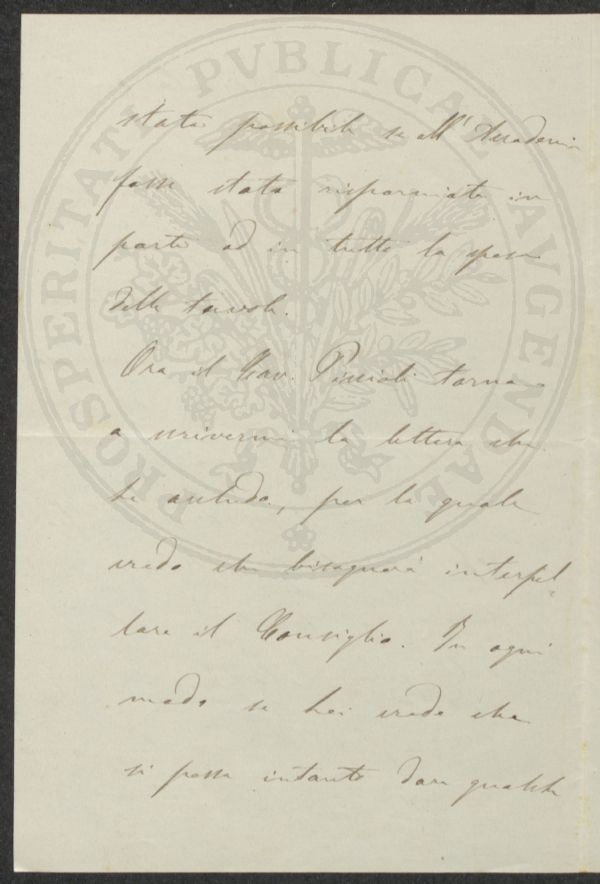 stata possibile se all'Accademia
fosse stata risparmiata in
parte od in tutto la spesa
delle tavole.
Ora il Cav. Piccioli torna
a scrivermi la lettera che
Le accludo, per la quale
credo che bisognerà interpel-
lare il Consiglio. In ogni
modo se Lei crede che
si possa intanto dare qualche
PROSPERITATI PVBLICAE AVGENDAE